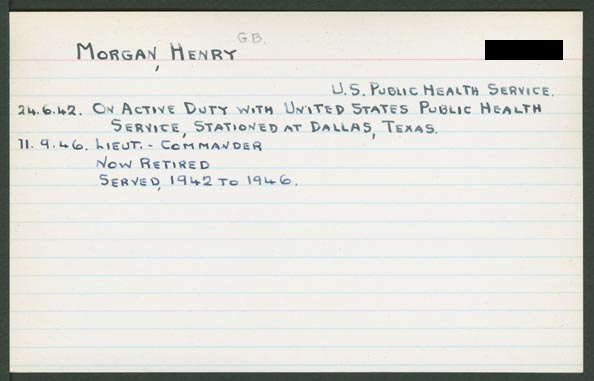 G.B.
MORGAN, HENRY
U.S. PUBLIC HEALTH SERVICE.
24.6.42. ON ACTIVE DUTY WITH UNITED STATES PUBLIC HEALTH
SERVICE, STATIONED AT DALLAS, TEXAS.
11.9.46. LIEUT.- COMMANDER
NOW RETIRED
SERVED, 1942 TO 1946.